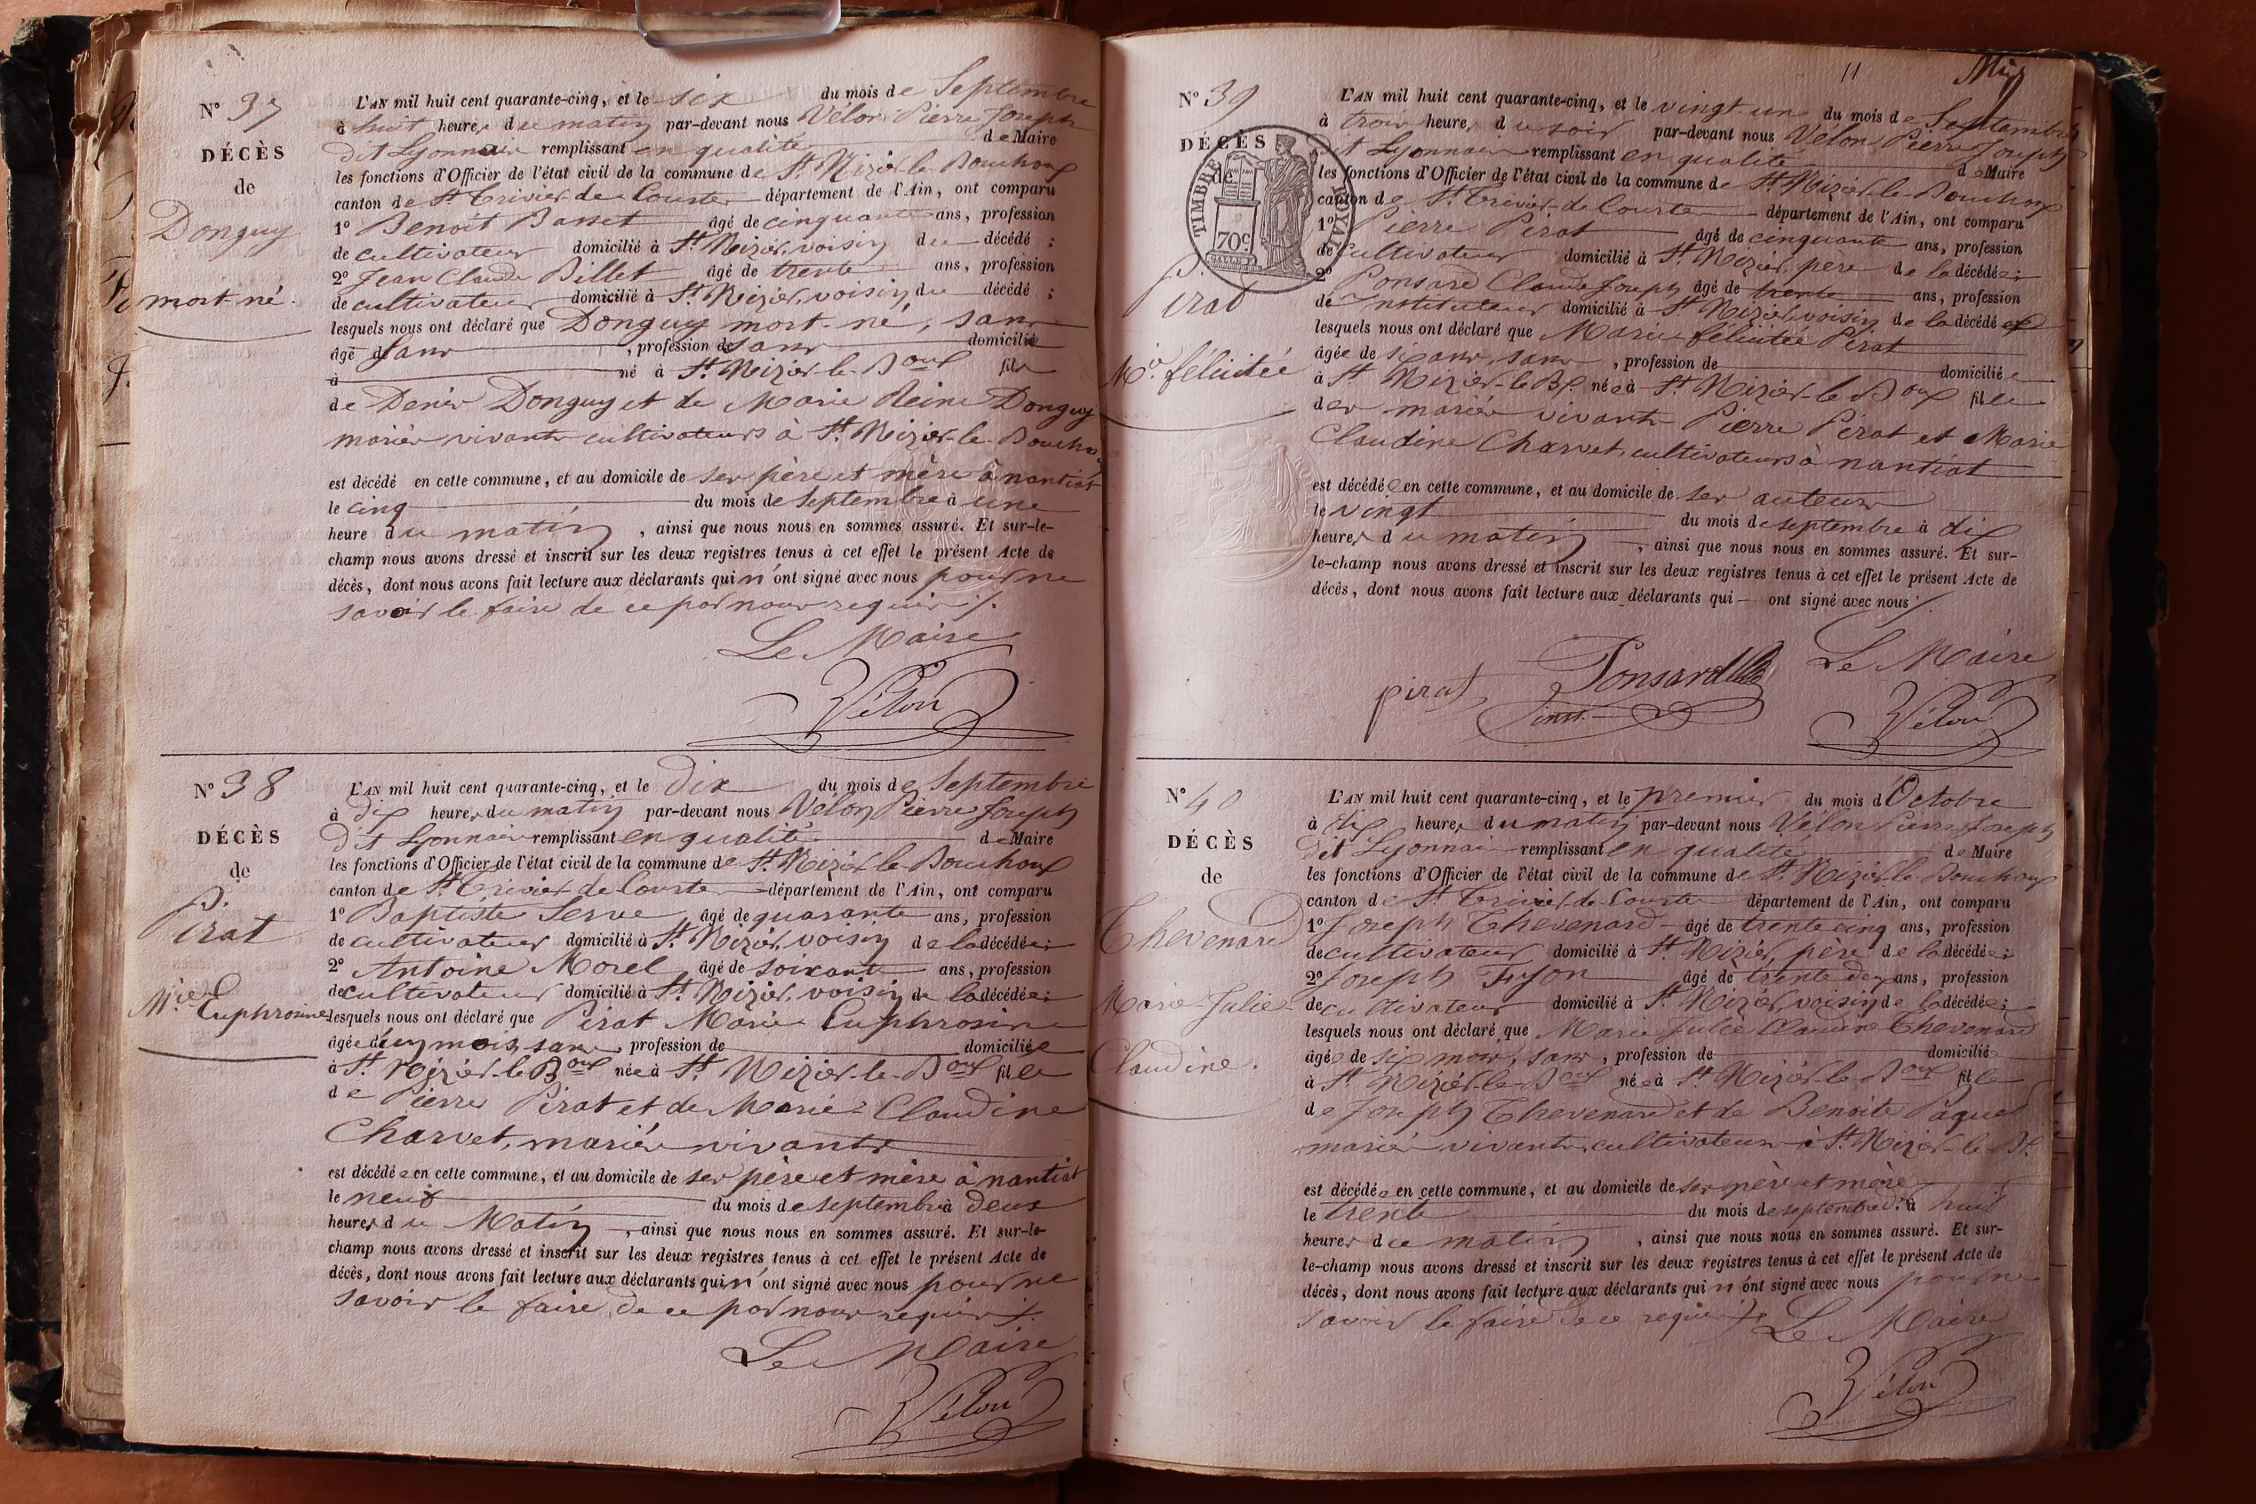 N° 37
DÉCÈS
de
Donguy
mort-né.
L'AN mil huit cent quarante-cinq, et le six du mois de Septembre
à huit heures du matin par-devant nous Vélon Pierre Joseph
dit Lyonnais remplissant en qualité de Maire
les fonctions d'Officier de l'état civil de la commune de St Nizier-le-Bouchoux
canton de St Trivier-de-Courtes département de l'Ain, ont comparu
1° Benoit Basset âgé de cinquante ans, profession
de cultivateur domicilié à St Nizier, voisin du décédé ;
2° Jean Claude Billet âgé de trente ans, profession
de cultivateur domicilié à St Nizier, voisin du décédé ;
lesquels nous ont déclaré que Donguy mort-né, sans
âge d sans , profession de sans domicilié
à né à St Nizier-le-Boux fils
de Denis Donguy et de Marie Reine Donguy
mariés vivants cultivateurs à St Nizier-le-Bouchoux
est décédé en cette commune, et au domicile de ses père et mère à nantiat
le cinq du mois de septembre à une
heure du matin , ainsi que nous nous en sommes assuré. Et sur-le-
champ nous avons dressé et inscrit sur les deux registres tenus à cet effet le présent Acte de
décès, dont nous avons fait lecture aux déclarants qui n'ont signé avec nous pour ne
savoir le faire de ce par nous requis ./.
Le Maire
Vélon
N° 38
DÉCÈS
de
P.
Pirat
Mie Euphrosine
L'AN mil huit cent quarante-cinq, et le dix du mois de Septembre
à dix heures du matin par-devant nous Vélon Pierre Joseph
dit Lyonnais remplissant en qualité de Maire
les fonctions d'Officier de l'état civil de la commune de St Nizier-le-Bouchoux
canton de St Trivier-de-Courtes département de l'Ain, ont comparu
1° Baptiste Serve âgé de quarante ans, profession
de cultivateur domicilié à St Nizier, voisin de la décédée ;
2° Antoine Morel âgé de soixante ans, profession
de cultivateur domicilié à St Nizier, voisin de la décédée ;
lesquels nous ont déclaré que Pirat Marie Euphrosine
âgée de mois, sans profession de domiciliée
à St Nizier-le-Boux née à St Nizier-le-Boux fille
de Pierre Pirat et de Marie Claudine
Charvet, mariés vivants
est décédée en cette commune, et au domicile de ses père et mère à nantiat
le neuf du mois de septembre à deux
heures du Matin , ainsi que nous nous en sommes assuré. Et sur-le-
champ nous avons dressé et inscrit sur les deux registres tenus à cet effet le présent Acte de
décès, dont nous avons fait lecture aux déclarants qui n'ont signé avec nous pour ne
savoir le faire, de ce par nous requis ./.
Le Maire
Vélon
11
N° 39
DÉCÈS
de
TIMBRE ROYAL
70c
P.
Pirat
Mie félicitée
L'AN mil huit cent quarante-cinq, et le vingt-un du mois de Septembre
à trois heures du soir par-devant nous Vélon Pierre Joseph
dit Lyonnais remplissant en qualité de Maire
les fonctions d'Officier de l'état civil de la commune de St Nizier-le-Bouchoux
canton de St Trivier-de-Courtes département de l'Ain, ont comparu
1° Pierre Pirat âgé de cinquante ans, profession
de cultivateur domicilié à St Nizier, père de la décédée ;
2° Ponsard Claude Joseph âgé de trente ans, profession
de Instituteur domicilié à St Nizier, voisin de la décédée
lesquels nous ont déclaré que Marie félicitée Pirat
âgée de six ans, sans , profession de domiciliée
à St Nizier-le-Bx née à St Nizier-le-Boux fille
des mariés vivants Pierre Pirat et Marie
Claudine Charvet, cultivateurs à nantiat
est décédée en cette commune, et au domicile de ses auteurs
le vingt du mois de septembre à dix
heures du matin , ainsi que nous nous en sommes assuré. Et sur-
le-champ nous avons dressé et inscrit sur les deux registres tenus à cet effet le présent Acte de
décès, dont nous avons fait lecture aux déclarants qui — ont signé avec nous ./.
pirat
Ponsard
inst.
Le Maire
Vélon
N° 40
DÉCÈS
de
Thevenard
Marie-Julie-
Claudine.
L'AN mil huit cent quarante-cinq, et le premier du mois d'Octobre
à dix heures du matin par-devant nous Vélon Pierre Joseph
dit Lyonnais remplissant en qualité de Maire
les fonctions d'Officier de l'état civil de la commune de St Nizier-le-Bouchoux
canton de St Trivier-de-Courtes département de l'Ain, ont comparu
1° Joseph Thevenard âgé de trente cinq ans, profession
de cultivateur domicilié à St Nizier, père de la décédée ;
2° Joseph Fyon âgé de trente deux ans, profession
de cultivateur domicilié à St Nizier, voisin de la décédée ;
lesquels nous ont déclaré que Marie Julie Claudine Thevenard
âgée de six mois, sans , profession de domiciliée
à St Nizier-le-Boux née à St Nizier-le-Boux fille
de Joseph Thevenard et de Benoite Paquet
mariés vivants, cultivateurs à St Nizier-le-Bx.
est décédée en cette commune, et au domicile de ses père et mère
le trente du mois de septembre dr. à huit
heures du matin , ainsi que nous nous en sommes assuré. Et sur-
le-champ nous avons dressé et inscrit sur les deux registres tenus à cet effet le présent Acte de
décès, dont nous avons fait lecture aux déclarants qui n'ont signé avec nous pour ne
savoir le faire de ce requis ./. Le Maire
Vélon